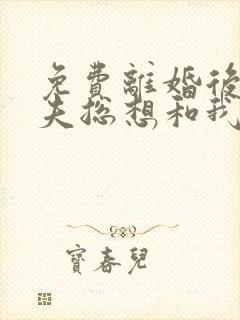 免費離婚後
夫總想和我
寶春兒